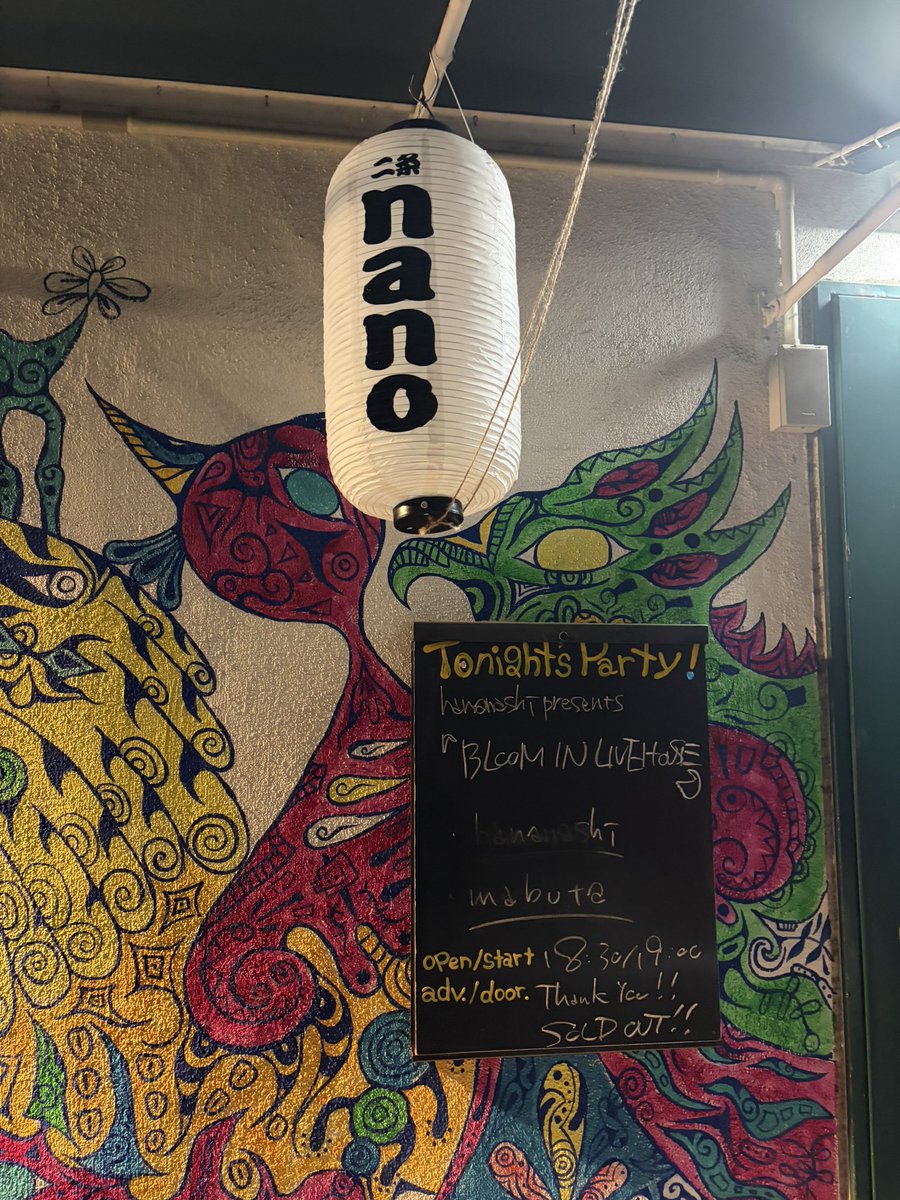 二条
nano
Tonight's Party!
hananashi presents
"BLOOM IN LIVEHOUSE"
・hananashi
・mabuta
open/start 18:30/19:00
adv./door. Thank You!!
SOLD OUT!!